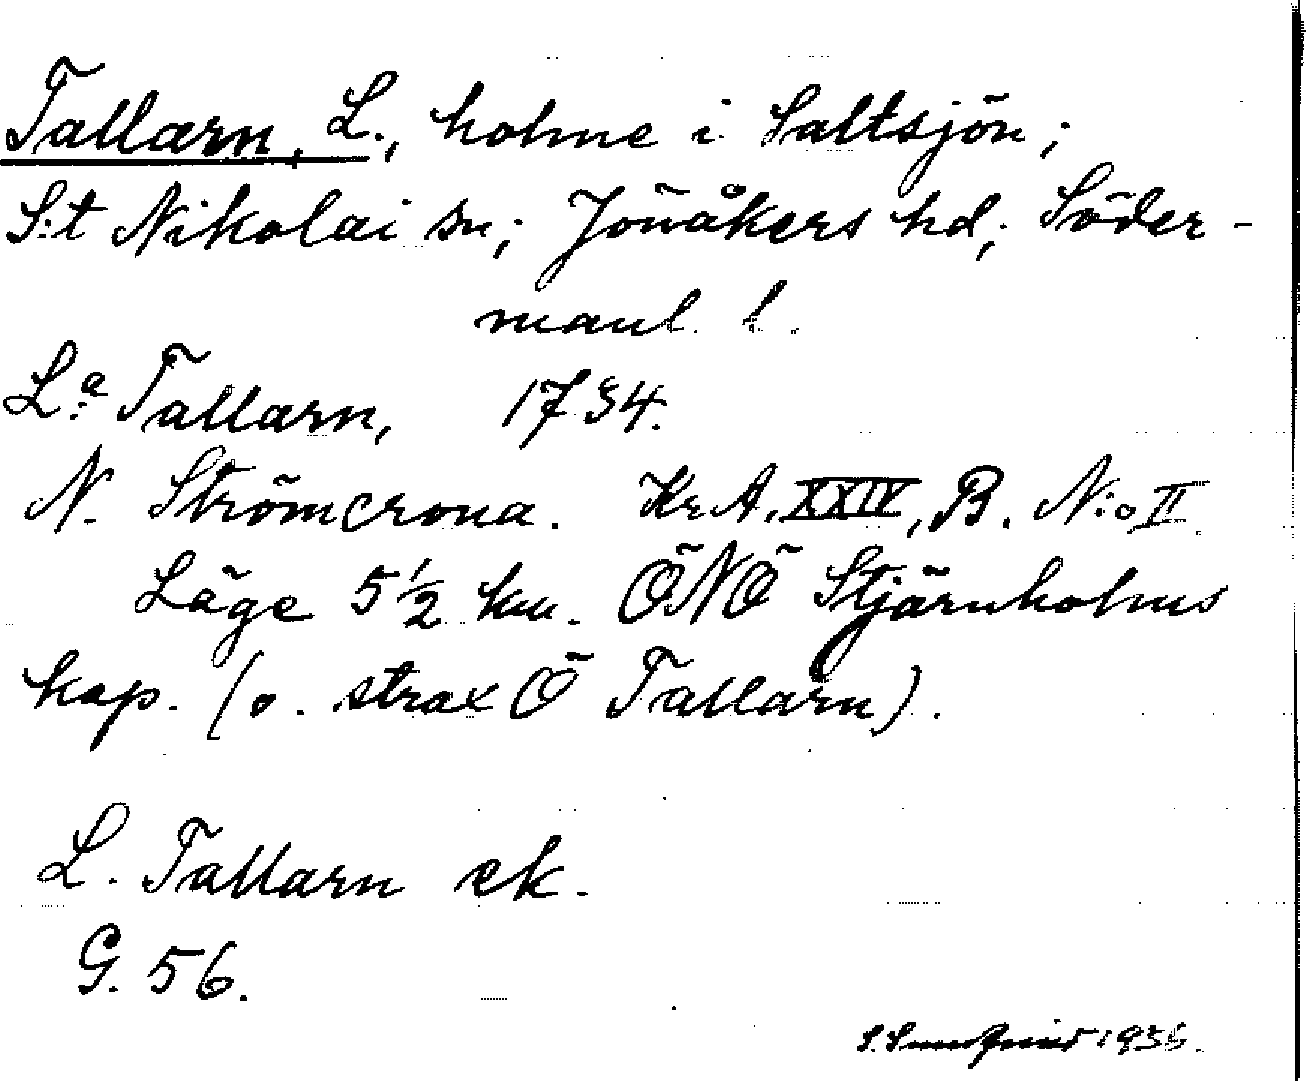 Tallarn, L., holme i Saltsjön;
S:t Nikolai sn; Jönåkers hd; Söder-
manl. l.
L:a Tallarn, 1734.
N. Strömcrona. Kr.A. XXIV, B. N:o II
Läge 5 1/2 km. ÖNÖ Stjärnholms
kap. (o. strax Ö Tallarn).
L. Tallarn ek.
G. 56.
S. 1935.